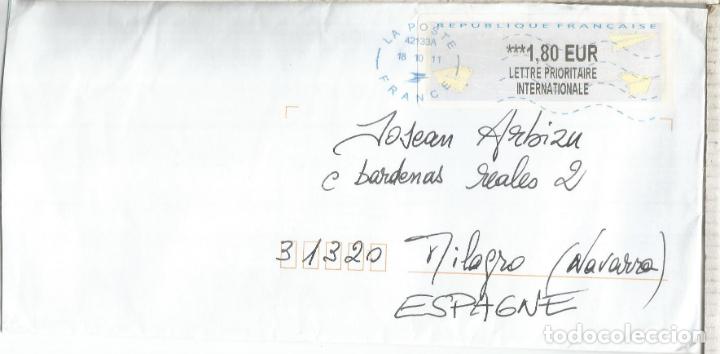 REPUBLIQUE FRANÇAISE
LA POSTE
42133A
18 10 11
FRANCE
***1,80 EUR
LETTRE PRIORITAIRE
INTERNATIONALE
Josean Arbizu
c bardenas reales 2
31320 Milagro (Navarra)
ESPAGNE
todocoleccion.net